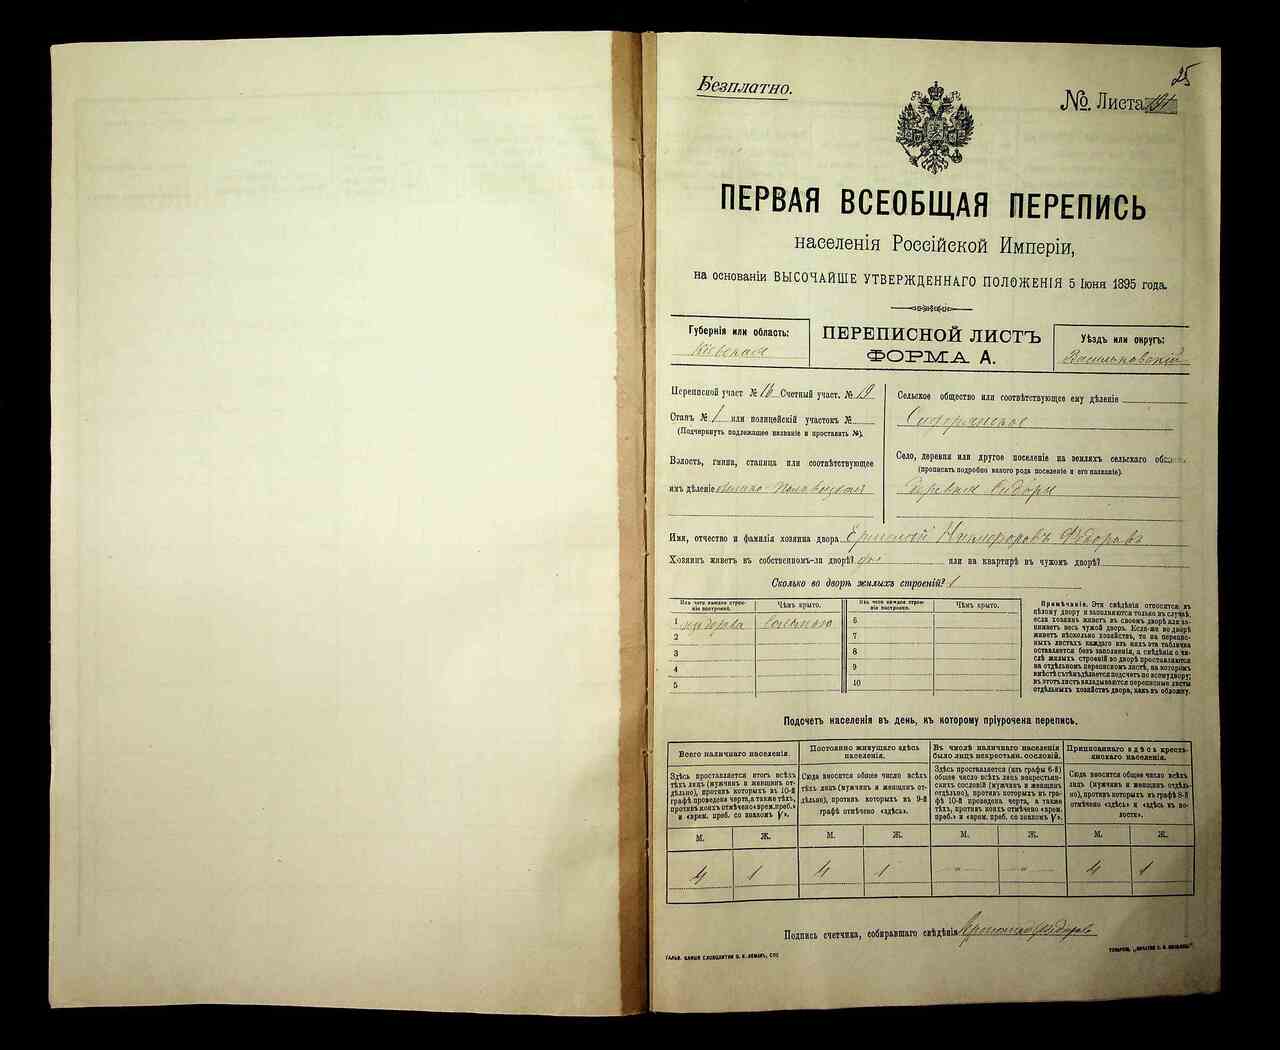 25
Безплатно.
№. Листа 191
ПЕРВАЯ ВСЕОБЩАЯ ПЕРЕПИСЬ
населенія Россійской Имперіи,
на основаніи ВЫСОЧАЙШЕ УТВЕРЖДЕННАГО ПОЛОЖЕНІЯ 5 Іюня 1895 года.
Губернія или область:
Кіевская
ПЕРЕПИСНОЙ ЛИСТЪ
ФОРМА А.
Уѣздъ или округъ:
Васильковскій
Переписной участ № 16 Счетный участ. № 19
Станъ № 1 или полицейскій участокъ №
(Подчеркнуть подлежащее названіе и проставить №).
Волость, гмина, станица или соотвѣтствующее
имъ дѣленіе
Сельское общество или соотвѣтствующее ему дѣленіе
Сидорянское
Село, деревня или другое поселеніе на земляхъ сельскаго
(прописать подробно какого рода поселеніе и его названіе).
деревня Сидоры
Имя, отчество и фамилія хозяина двора
Хозяинъ живетъ въ собственномъ-ли дворѣ? да или на квартирѣ въ чужомъ дворѣ?
Сколько во дворѣ жилыхъ строеній? 1
Изъ чего каждое строеніе построено. Чѣмъ крыто. Изъ чего каждое строеніе построено. Чѣмъ крыто.
1 соломою 6
2 7
3 8
4 9
5 10
Примѣчаніе. Эти свѣдѣнія относятся къ
цѣлому двору и заполняются только въ случаѣ,
если хозяинъ живетъ въ своемъ дворѣ или занимаетъ весь чужой дворъ. Если-же во дворѣ
живетъ нѣсколько хозяйствъ, то на переписныхъ листахъ каждаго изъ нихъ эта табличка
оставляется безъ заполненія, а свѣдѣнія о числѣ жилыхъ строеній во дворѣ проставляются
на отдѣльномъ переписномъ листѣ, на которомъ
вмѣстѣ съ тѣмъ дѣлается подсчетъ по всему двору;
въ этотъ листъ вкладываются переписные листы
отдѣльныхъ хозяйствъ двора, какъ въ обложку.
Подсчетъ населенія въ день, къ которому пріурочена перепись.
Всего наличнаго населенія.
Здѣсь проставляется итогъ всѣхъ
тѣхъ лицъ (мужчинъ и женщинъ отдѣльно), противъ которыхъ въ 10-й
графѣ проведена черта, а также тѣхъ,
противъ коихъ отмѣчено «врем. преб.»
и «врем. преб. со знакомъ V».
Постоянно живущаго здѣсь
населенія.
Сюда вносится общее число всѣхъ
тѣхъ лицъ (мужчинъ и женщинъ отдѣльно), противъ которыхъ въ 9-й
графѣ отмѣчено «здѣсь».
Въ числѣ наличнаго населенія
было лицъ некрестьян. сословій.
Здѣсь проставляется (изъ графы 6-й)
общее число всѣхъ лицъ некрестьянскихъ сословій (мужчинъ и женщинъ
отдѣльно), противъ которыхъ въ графѣ 10-й проведена черта, а также
тѣхъ, противъ коихъ отмѣчено «врем.
преб.» и «врем. преб. со знакомъ V».
Приписаннаго здѣсь крестьянскаго населенія.
Сюда вносится общее число всѣхъ
лицъ (мужчинъ и женщинъ отдѣльно), противъ которыхъ въ графѣ 8-й
отмѣчено «здѣсь» и «здѣсь въ волости».
М. Ж. М. Ж. М. Ж. М. Ж.
4 1 4 1 - - 4 1
Подпись счетчика, собиравшаго свѣдѣнія